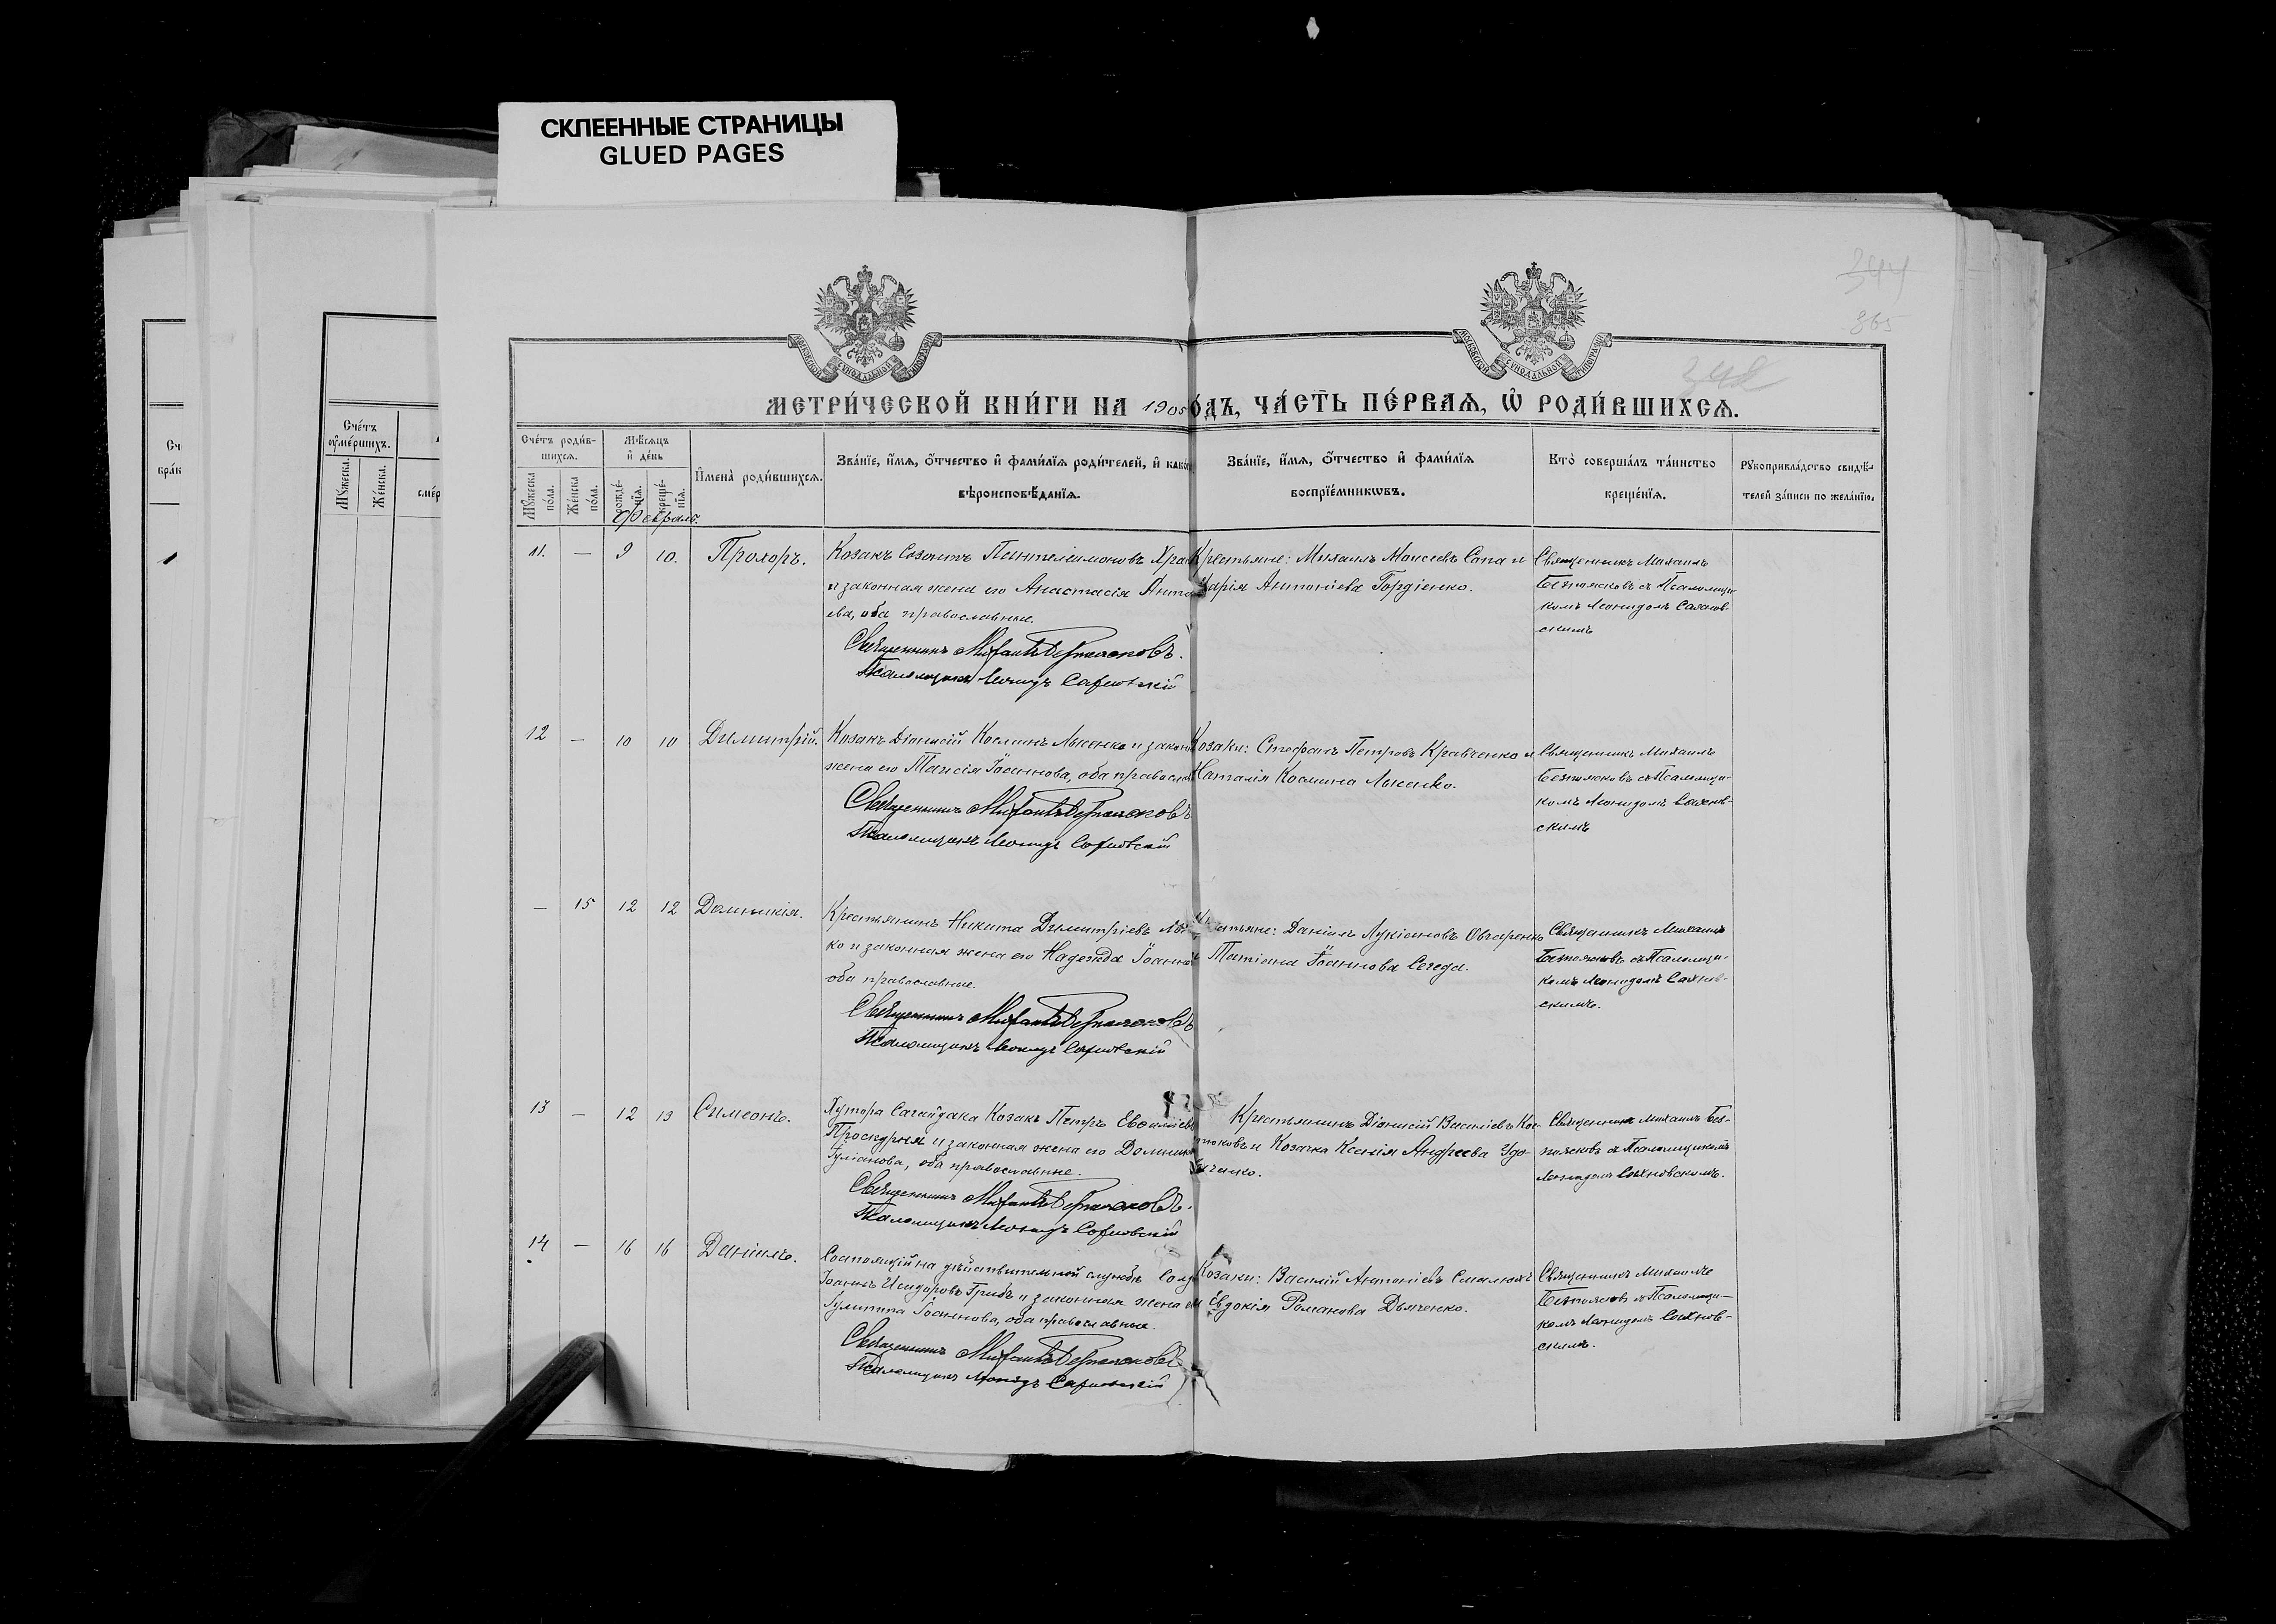 СКЛЕЕННЫЕ СТРАНИЦЫ
GLUED PAGES
344
365
МОСКОВСКОЙ СѴНОДАЛЬНОЙ ТИПОГРАФІИ
МОСКОВСКОЙ СѴНОДАЛЬНОЙ ТИПОГРАФІИ
МЕТРИ́ЧЕСКОЙ КНИ́ГИ НА 1905 ѠДЪ, ЧА́СТЬ ПЕ́РВАѦ, Ѡ҆ РОДИ́ВШИХСѦ.
Сче́тъ
оу҆ме́ршихъ.
Мꙋ́жеска.
Же́нска.
Сче́тъ роди́в-
шихсѧ.
Мꙋ́жеска
по́ла.
Же́нска
по́ла.
Мѣ́сѧцъ
и҆ де́нь
рожде́-
нїѧ.
креще́-
нїѧ.
И҆мена̀ роди́вшихсѧ.
Зва́нїе, и҆́мѧ, ѻ҆́тчество и҆ фами́лїѧ роди́телей, и҆ како́
вѣроисповѣ́данїѧ.
Зва́нїе, и҆́мѧ, ѻ҆́тчество и҆ фами́лїѧ
воспрїе́мникѡвъ.
Кто̀ соверша́лъ та́инство
креще́нїѧ.
Рꙋкоприкла́дство свидѣ́-
телей за́писи по жела́нїю.
Февраль.
11. — 9 10. Прохоръ.
Козакъ Созонтъ Пантелеимоновъ Хра
и законная жена его Анастасія Анто
ева, оба православные.
Священникъ Михаилъ Безпоясковъ.
Псаломщикъ Леонидъ Сахновскій
Крестьяне: Михаилъ Моисеевъ Сопа и
Марія Антоніева Гордіенко.
Священникъ Михаилъ
Безпоясковъ съ Псаломщи-
комъ Леонидомъ Сахнов-
скимъ
12 — 10 10 Димитрій.
Козакъ Діонисій Косминъ Лысенко и закон
жена его Таисія Іоаннова, оба правосла
Священникъ Михаилъ Безпоясковъ
Псаломщикъ Леонидъ Сахновскій
Козаки: Стефанъ Петровъ Кравченко и
Наталія Космина Лысенко.
Священникъ Михаилъ
Безпоясковъ съ Псаломщи-
комъ Леонидомъ Сахнов-
скимъ
— 15 12 12 Домникія.
Крестьянинъ Никита Димитріевъ Лы
ко и законная жена его Надежда Іоанно
оба православные.
Священникъ Михаилъ Безпоясковъ
Псаломщикъ Леонидъ Сахновскій
стьяне: Даніилъ Лукіановъ Овчаренко
Татіана Іоаннова Середа.
Священникъ Михаилъ
Безпоясковъ съ Псаломщи-
комъ Леонидомъ Сахнов-
скимъ.
13 — 12 13 Симеонъ.
Хутора Сагайдака Козакъ Петръ Евфиміевъ
Проскурня и законная жена его Домникі
Іуліанова, оба православные.
Священникъ Михаилъ Безпоясковъ.
Псаломщикъ Леонидъ Сахновскій
Крестьянинъ Діонисій Василіевъ Кос-
тюковъ и Козачка Ксенія Андреева Удо-
виченко.
Священникъ Михаилъ Без-
поясковъ съ Псаломщикомъ
Леонидомъ Сахновскимъ.
14 — 16 16 Даніилъ.
Состоящій на дѣйствительной службѣ Солд
Іоаннъ Исидоровъ Грибъ и законная жена его
Іулитта Іоаннова, оба православные.
Священникъ Михаилъ Безпоясковъ
Псаломщикъ Леонидъ Сахновскій
Козаки: Василій Антоніевъ Смалюхъ
и Евдокія Романова Дьяченко.
Священникъ Михаилъ
Безпоясковъ съ Псаломщи-
комъ Леонидомъ Сахнов-
скимъ.